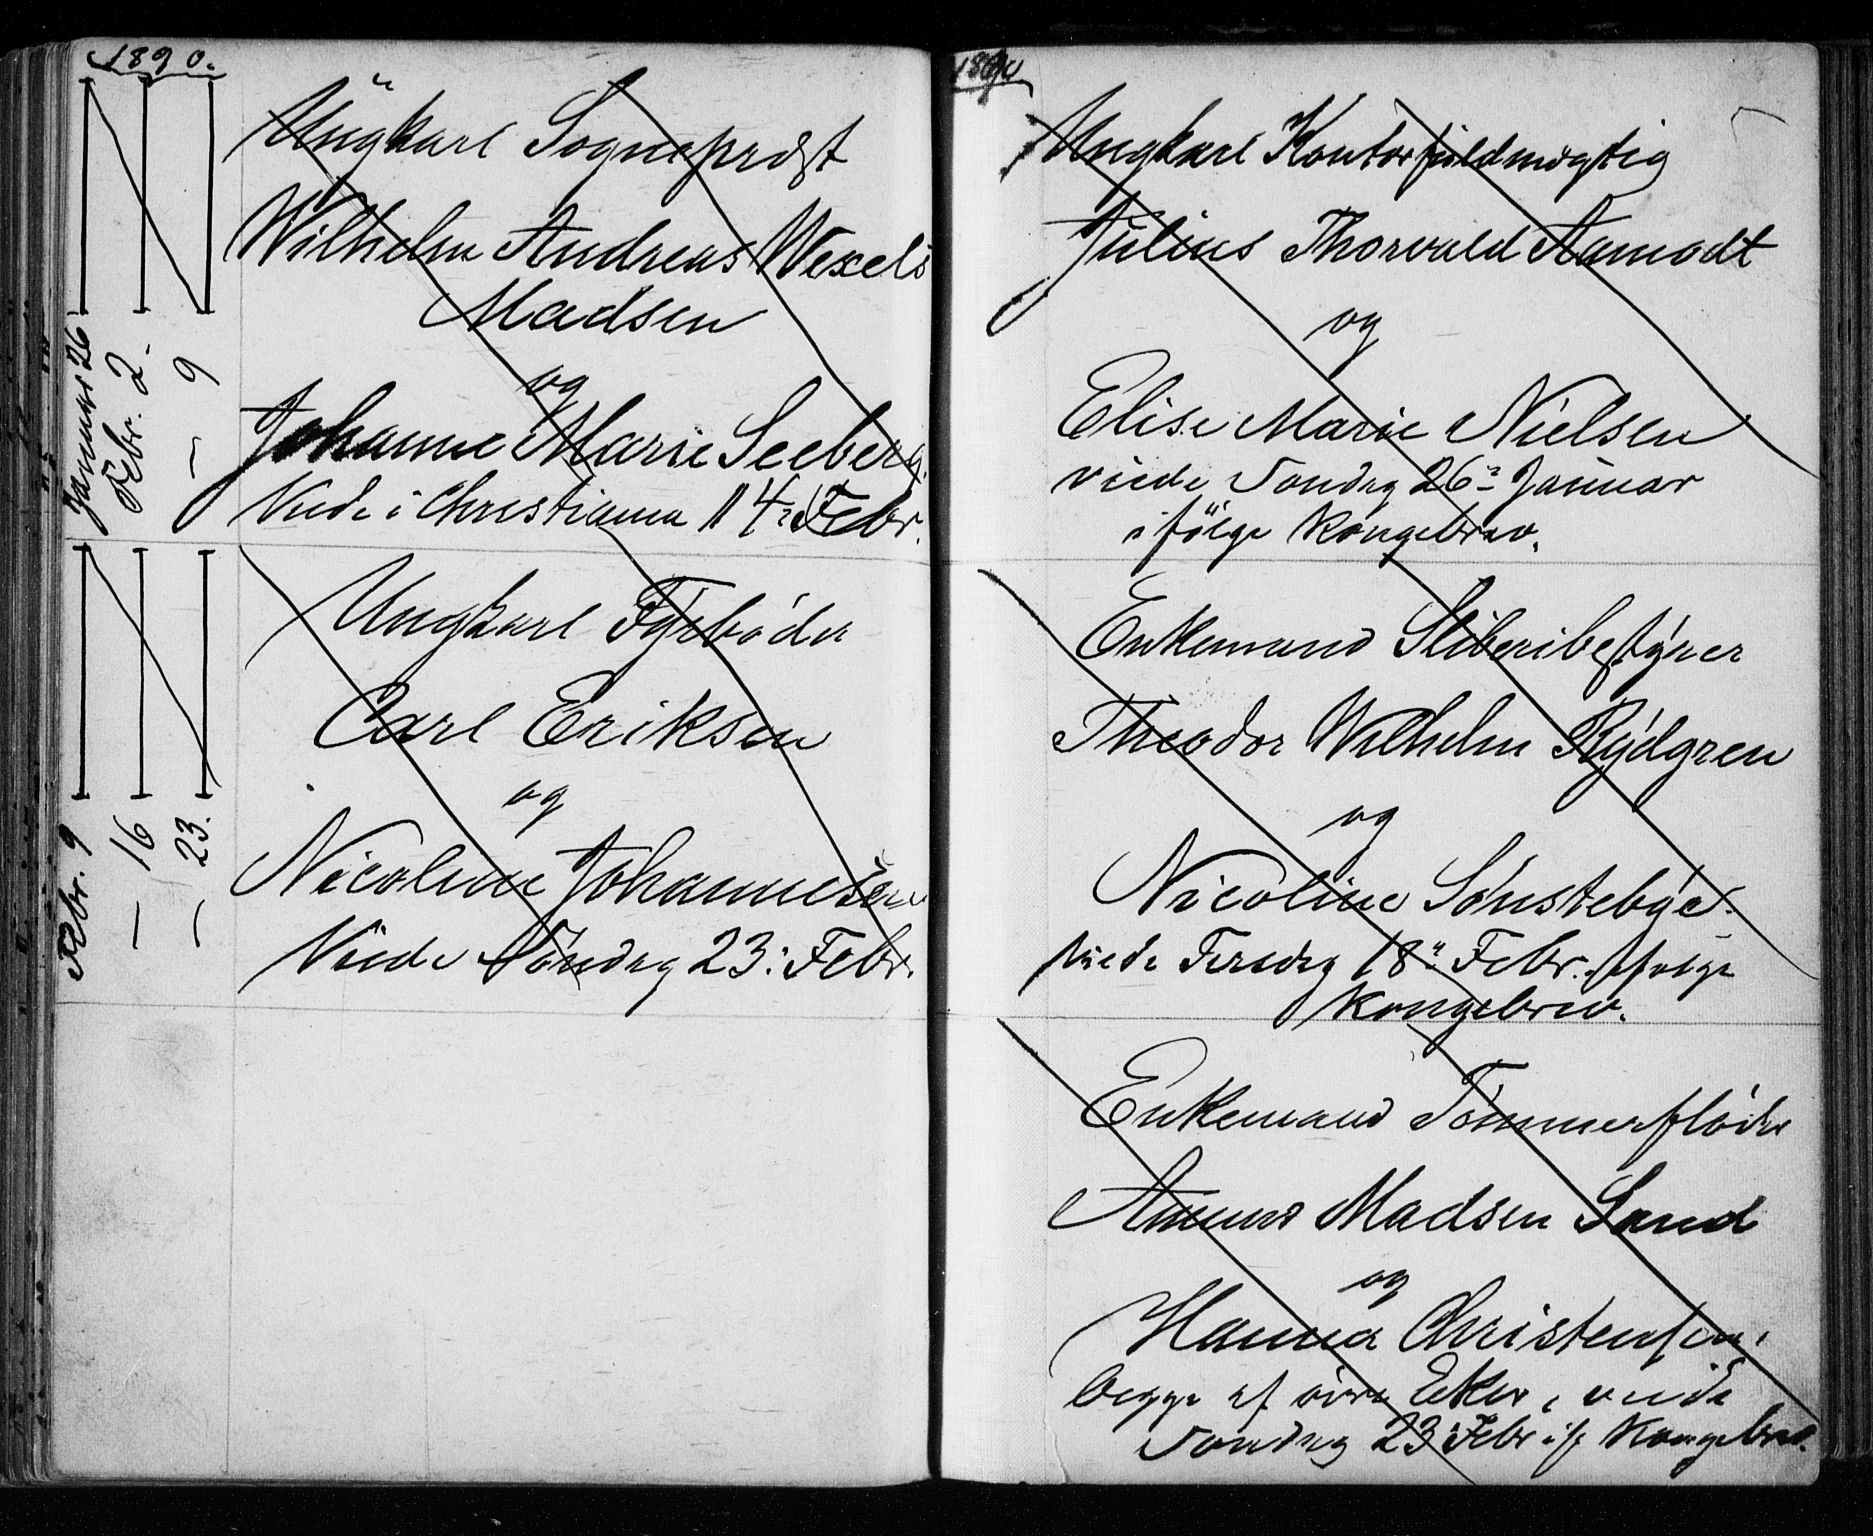 1890.
Januar 26
Febr. 2.
— 9
Ungkarl Sogneprest
Wilhelm Andreas Wexels
Madsen
og
Johanne Marie Seeberg.
Viede i Christiania 14 Febr.
Febr. 9
— 16
— 23.
Ungkarl Fyrböder
Carl Eriksen
og
Nicoline Johannesen
Viede Söndag 23: Febr.
1890
Ungkarl Kontorfuldmægtig
Julius Thorvald Aamodt
og
Elise Marie Nielsen
viede Söndag 26: Januar
ifölge Kongebrev.
Enkemand Sliberibestyrer
Theodor Wilhelm Rydgren
og
Nicoline Sönstebye.
Viede Tirsdag 18: Febr. ifölge
Kongebrev.
Enkemand Tömmerflöder
Amund Madsen Sand
og
Hanna Christensen,
begge af övre Eker, viede
Söndag 23 Febr if Kongebrev.